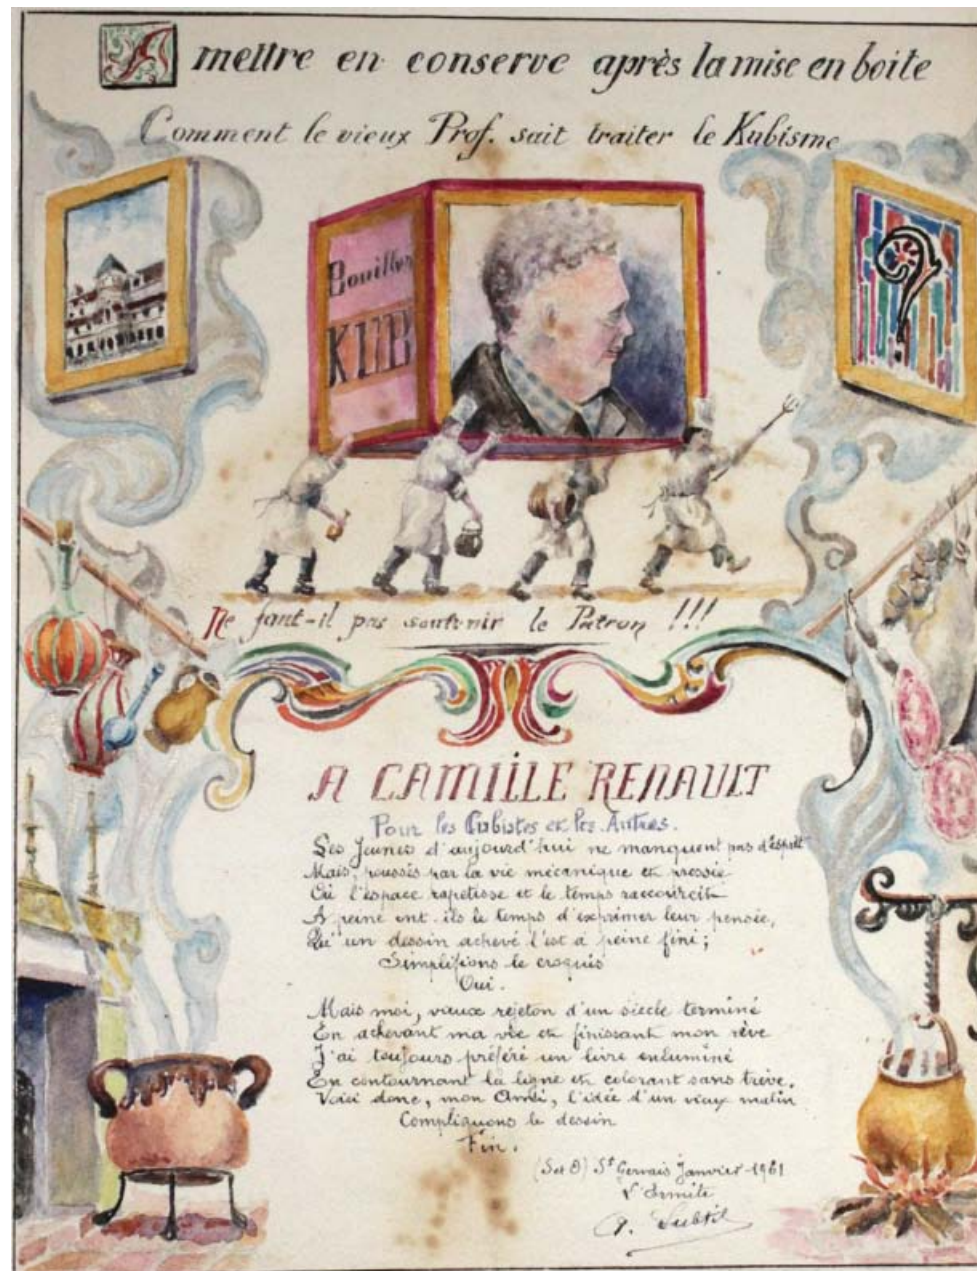 A mettre en conserve après la mise en boite
Comment le vieux Prof. sait traiter le Kubisme
Bouillon
KUB
Ne faut-il pas soutenir le Patron !!!
A CAMILLE RENAULT
Pour les Cubistes et les Autres.
Les Jeunes d'aujourd'hui ne manquent pas d'esprit
Mais, poussés par la vie mécanique et pressée
Où l'espace rapetisse et le temps raccourcit
A peine ont-ils le temps d'exprimer leur pensée,
Qu'un dessin achevé l'est à peine fini ;
Simplifions le croquis
Oui.
Mais moi, vieux rejeton d'un siècle terminé
En achevant ma vie et finissant mon rêve
J'ai toujours préféré un livre enluminé
En contournant la ligne et colorant sans trêve.
Voici donc, mon Ami, l'idée d'un vieux malin
Compliquons le dessin
Fin.
(S et O) St Gervais Janvier-1961
L'Ermite
A. Subtil